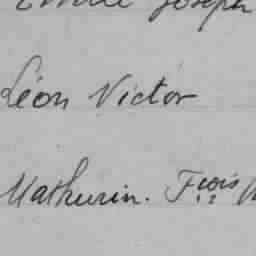 Emile Joseph
Léon Victor
Mathurin. Frçois